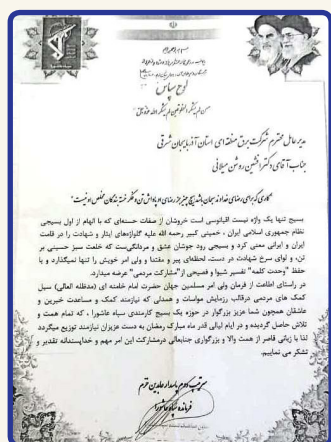 لوح سپاس
من لم یشکر المخلوقین لم یشکر الله عزوجل
مدیر عامل محترم شرکت برق منطقه ای استان آذربایجان شرقی
جناب آقای دکتر افشین روشن میلانی
"کاری که برای رضای خداوند جهان باشد پاسخ جز رضای او پاداش آن و شکر نیست"
بسیج تنها یک واژه نیست اقیانوسی است خروشان از صفات حسنه‌ای که با الهام از اول بسیجی
نظام جمهوری اسلامی ایران ، خمینی کبیر رحمه الله علیه گلواژه‌های ایثار و شهادت را در قامت
ایران و ایرانی معنی کرد و بسیجی رود جوشان عشق و مردانگی‌ست که خلعت سبز حسینی بر
تن، و لوای سرخ شهادت در دست، لحظه‌ای پیر و مقتدا و ولی امر خویش را تنها نمیگذارد و با
حفظ "وحدت کلمه" تفسیر شیوا و فصیحی از"مشارکت مردمی" عرضه میدارد.
در راستای اطاعت از فرمان ولی امر مسلمین جهان حضرت امام خامنه ای (مدظله العالی) سیل
کمک های مردمی درقالب رزمایش مواسات و همدلی که نیازمند کمک و مساعدت خیرین و
عاشقان همچون شما عزیز بزرگوار در حوزه یک بسیج کارمندی سپاه عاشورا ، که تمام همت و
تلاش حاصل گردیده و در ایام لیالی قدر ماه مبارک رمضان به دست عزیزان نیازمند توزیع میگردد
لذا با زبانی قاصر از همت والا و بزرگواری جنابعالی درمشارکت این امر مهم و خداپسندانه تقدیر و
تشکر می نماییم.
سرتیپ دوم پاسدار عابدین خرم
فرمانده سپاه عاشورا